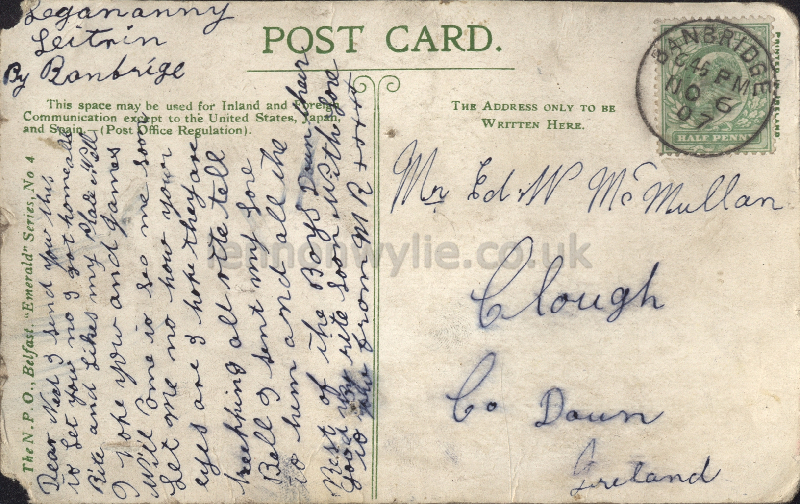 Legananny
Leitrin
By Banbrige
POST CARD.
This space may be used for Inland and Foreign
Communication except to the United States, Japan,
and Spain. (Post Office Regulation).
THE ADDRESS ONLY TO BE
WRITTEN HERE.
BANBRIDGE
6 45 PM
NO 6
07
HALF PENNY
PRINTED IN IRELAND
The N.P.O., Belfast, "Emerald" Series, No 4
Dear Ned I send you this
to let you no I got home all
Rite and Likes my Place Well
I hope you and James
Will Come to see me soon
Let me no how your
eyes are I hope they are
keepping all rite tell
Bell I sent my love
to hum and all the
Rest of the Boys Down their
Good by rite soon With love
to you from M R ++++
Mr Ed. W McMullan
Clough
Co Down
Ireland
lennonwylie.co.uk